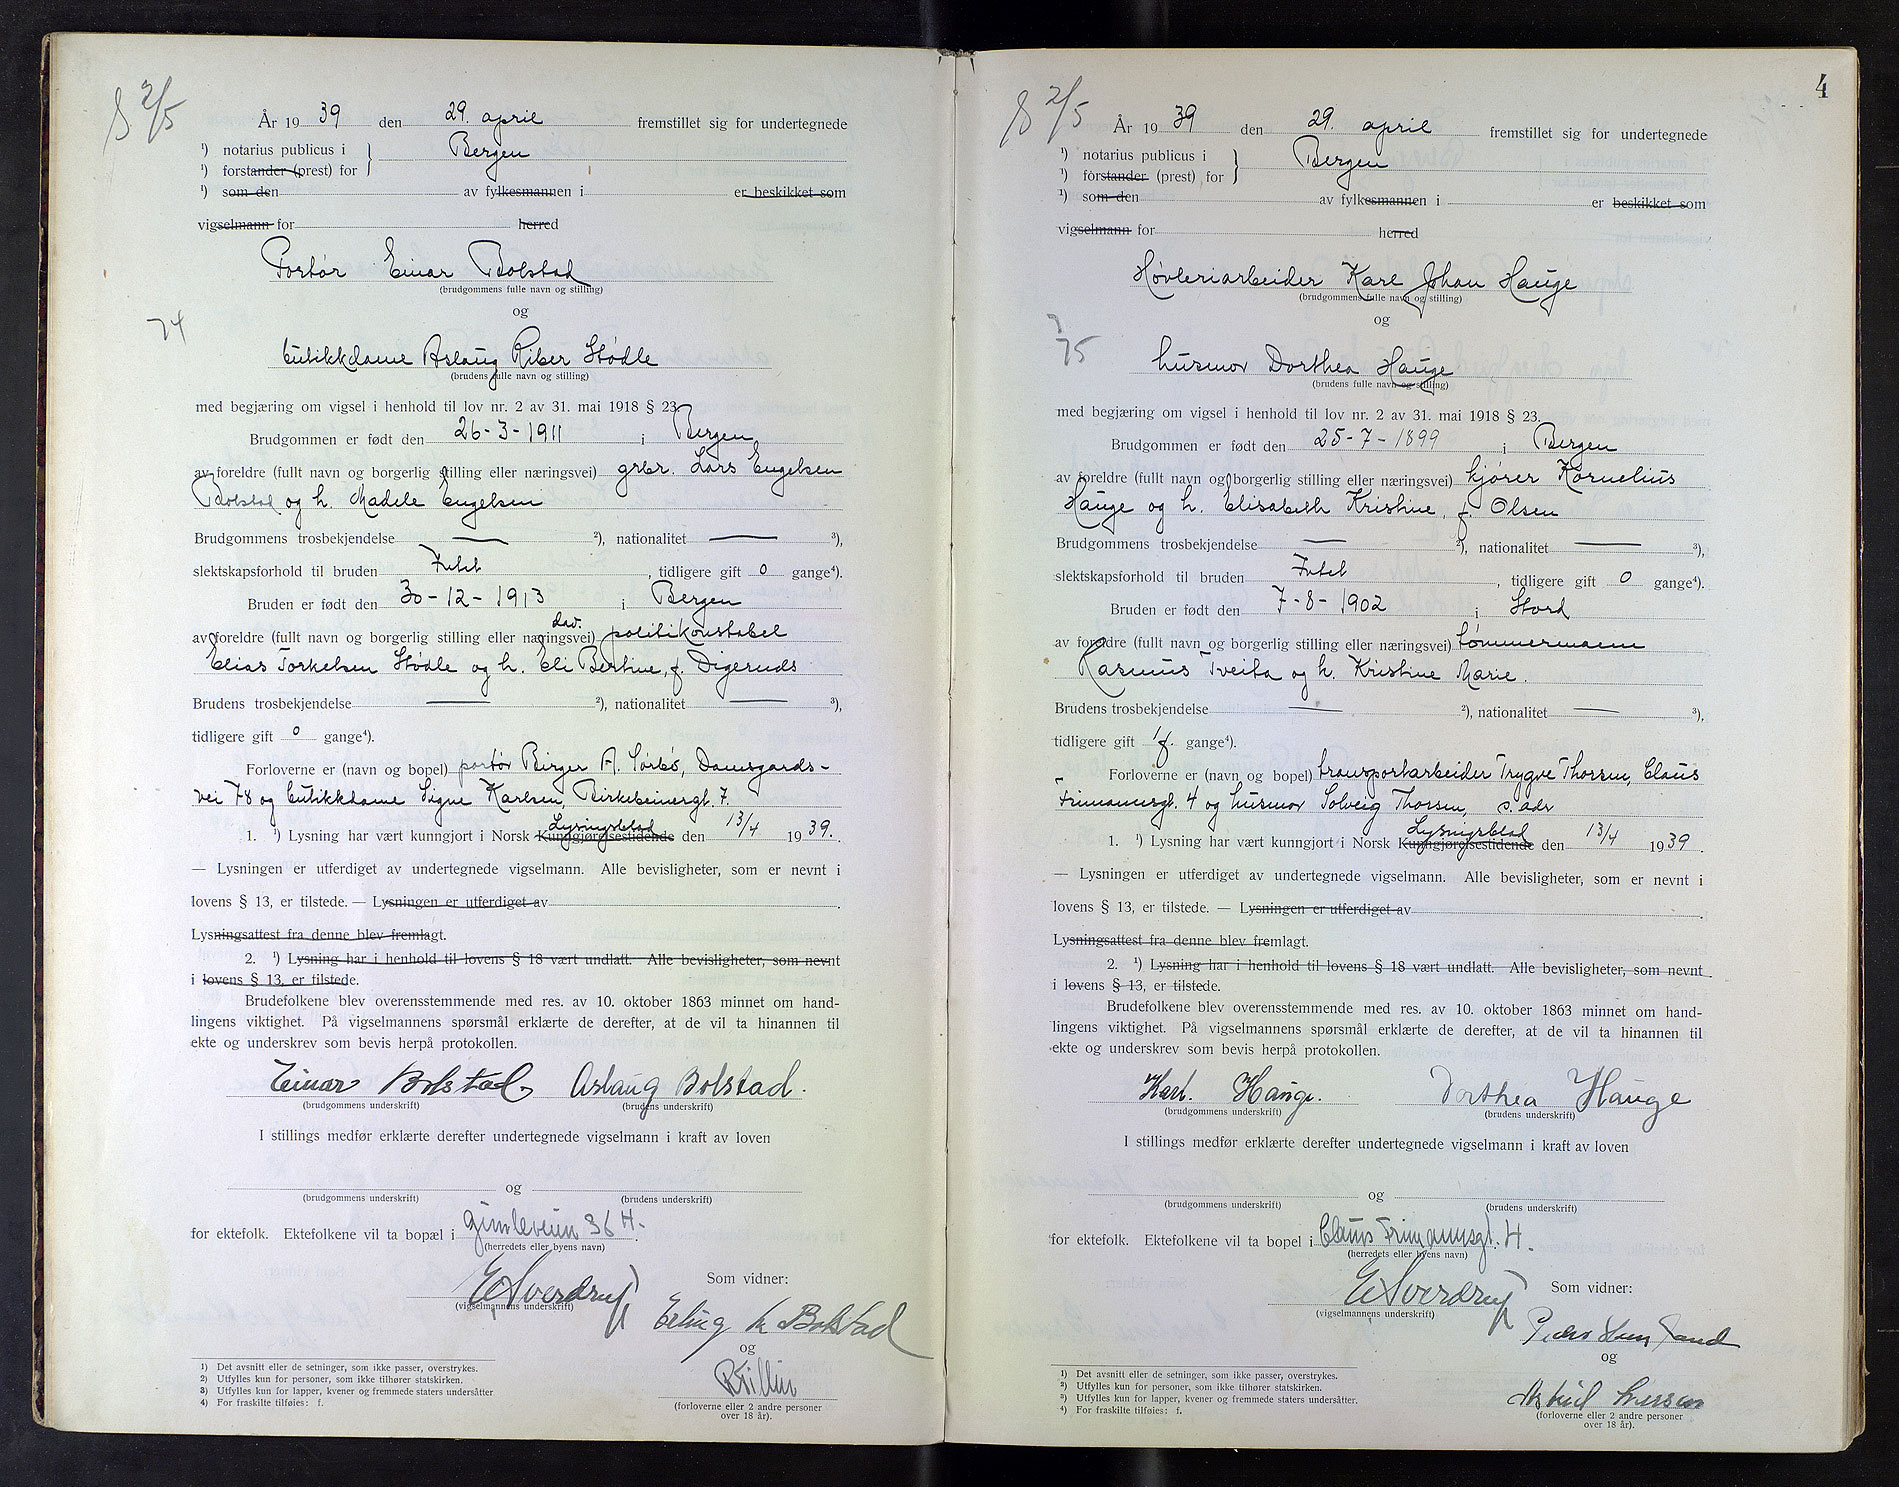 2/5
År 1939 den 29. april fremstillet sig for undertegnede
¹) notarius publicus i } Bergen
¹) forstander (prest) for
¹) som den av fylkesmannen i er beskikket som
vigselmann for herred
Portør Einar Bolstad
(brudgommens fulle navn og stilling)
og
74
butikkdame Aslaug Riber Stødle
(brudens fulle navn og stilling)
med begjæring om vigsel i henhold til lov nr. 2 av 31. mai 1918 § 23.
Brudgommen er født den 26-3-1911 i Bergen
av foreldre (fullt navn og borgerlig stilling eller næringsvei) grbr. Lars Engelsen
Bolstad og h. Madele Engelsen
Brudgommens trosbekjendelse — ²), nationalitet — ³),
slektskapsforhold til bruden Intet, tidligere gift 0 gange⁴).
Bruden er født den 30-12-1913 i Bergen
av foreldre (fullt navn og borgerlig stilling eller næringsvei) dav. politikonstabel
Elias Torkelsen Stødle og h. Eli Bertine, f. Digernds
Brudens trosbekjendelse — ²), nationalitet — ³),
tidligere gift 0 gange⁴).
Forloverne er (navn og bopel) portør Birger A. Sørbø, Damsgards-
vei 78 og butikkdame Signe Karlsen, Birkebeinergt. 7.
1. ¹) Lysning har vært kunngjort i Norsk Kunngjørelsestidende Lysingsblad den 13/4 1939.
— Lysningen er utferdiget av undertegnede vigselmann. Alle bevisligheter, som er nevnt i
lovens § 13, er tilstede. — Lysningen er utferdiget av .
Lysningsattest fra denne blev fremlagt.
2. ¹) Lysning har i henhold til lovens § 18 vært undlatt. Alle bevisligheter, som nevnt
i lovens § 13, er tilstede.
Brudefolkene blev overensstemmende med res. av 10. oktober 1863 minnet om hand-
lingens viktighet. På vigselmannens spørsmål erklærte de derefter, at de vil ta hinannen til
ekte og underskrev som bevis herpå protokollen.
Einar Bolstad Aslaug Bolstad.
(brudgommens underskrift) (brudens underskrift)
I stillings medfør erklærte derefter undertegnede vigselmann i kraft av loven
og
(brudgommens underskrift) (brudens underskrift)
for ektefolk. Ektefolkene vil ta bopæl i Gimleveien 36 H.
(herredets eller byens navn)
E Sverdrup Som vidner:
(vigselmannens underskrift)
Erling Bolstad
og
(forloverne eller 2 andre personer
over 18 år).
1) Det avsnitt eller de setninger, som ikke passer, overstrykes.
2) Utfylles kun for personer, som ikke tilhører statskirken.
3) Utfylles kun for lapper, kvener og fremmede staters undersåtter
4) For fraskilte tilføies: f.
4
2/5
År 1939 den 29. april fremstillet sig for undertegnede
¹) notarius publicus i } Bergen
¹) forstander (prest) for
¹) som den av fylkesmannen i er beskikket som
vigselmann for herred
Høvleriarbeider Karl Johan Hauge
(brudgommens fulle navn og stilling)
og
75
husmor Dorthea Hauge
(brudens fulle navn og stilling)
med begjæring om vigsel i henhold til lov nr. 2 av 31. mai 1918 § 23.
Brudgommen er født den 25-7-1899 i Bergen
av foreldre (fullt navn og borgerlig stilling eller næringsvei) kjører Kornelius
Hauge og h. Elisabeth Kristine, f. Olsen
Brudgommens trosbekjendelse — ²), nationalitet — ³),
slektskapsforhold til bruden Intet, tidligere gift 0 gange⁴).
Bruden er født den 7-8-1902 i Stord
av foreldre (fullt navn og borgerlig stilling eller næringsvei) tømmermann
Rasmus Tveita og h. Kristine Marie.
Brudens trosbekjendelse — ²), nationalitet — ³),
tidligere gift 1 f. gange⁴).
Forloverne er (navn og bopel) transportarbeider Trygve Thorsen, Claus
Frimannsgt. 4 og husmor Solveig Thorsen, s. adr
1. ¹) Lysning har vært kunngjort i Norsk Kunngjørelsestidende Lysningsblad den 13/4 1939.
— Lysningen er utferdiget av undertegnede vigselmann. Alle bevisligheter, som er nevnt i
lovens § 13, er tilstede. — Lysningen er utferdiget av .
Lysningsattest fra denne blev fremlagt.
2. ¹) Lysning har i henhold til lovens § 18 vært undlatt. Alle bevisligheter, som nevnt
i lovens § 13, er tilstede.
Brudefolkene blev overensstemmende med res. av 10. oktober 1863 minnet om hand-
lingens viktighet. På vigselmannens spørsmål erklærte de derefter, at de vil ta hinannen til
ekte og underskrev som bevis herpå protokollen.
Karl. Hauge. Dorthea Hauge
(brudgommens underskrift) (brudens underskrift)
I stillings medfør erklærte derefter undertegnede vigselmann i kraft av loven
og
(brudgommens underskrift) (brudens underskrift)
for ektefolk. Ektefolkene vil ta bopel i Claus Frimannsgt. 4.
(herredets eller byens navn)
E Sverdrup Som vidner:
(vigselmannens underskrift)
og
(forloverne eller 2 andre personer
over 18 år).
1) Det avsnitt eller de setninger, som ikke passer, overstrykes.
2) Utfylles kun for personer, som ikke tilhører statskirken.
3) Utfylles kun for lapper, kvener og fremmede staters undersåtter.
4) For fraskilte tilføies: f.